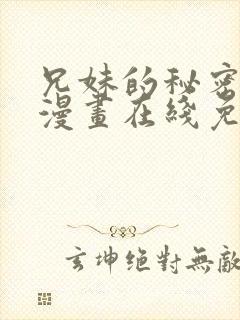 兄妹的秘密
漫畫在綫免
玄坤絕對無敵